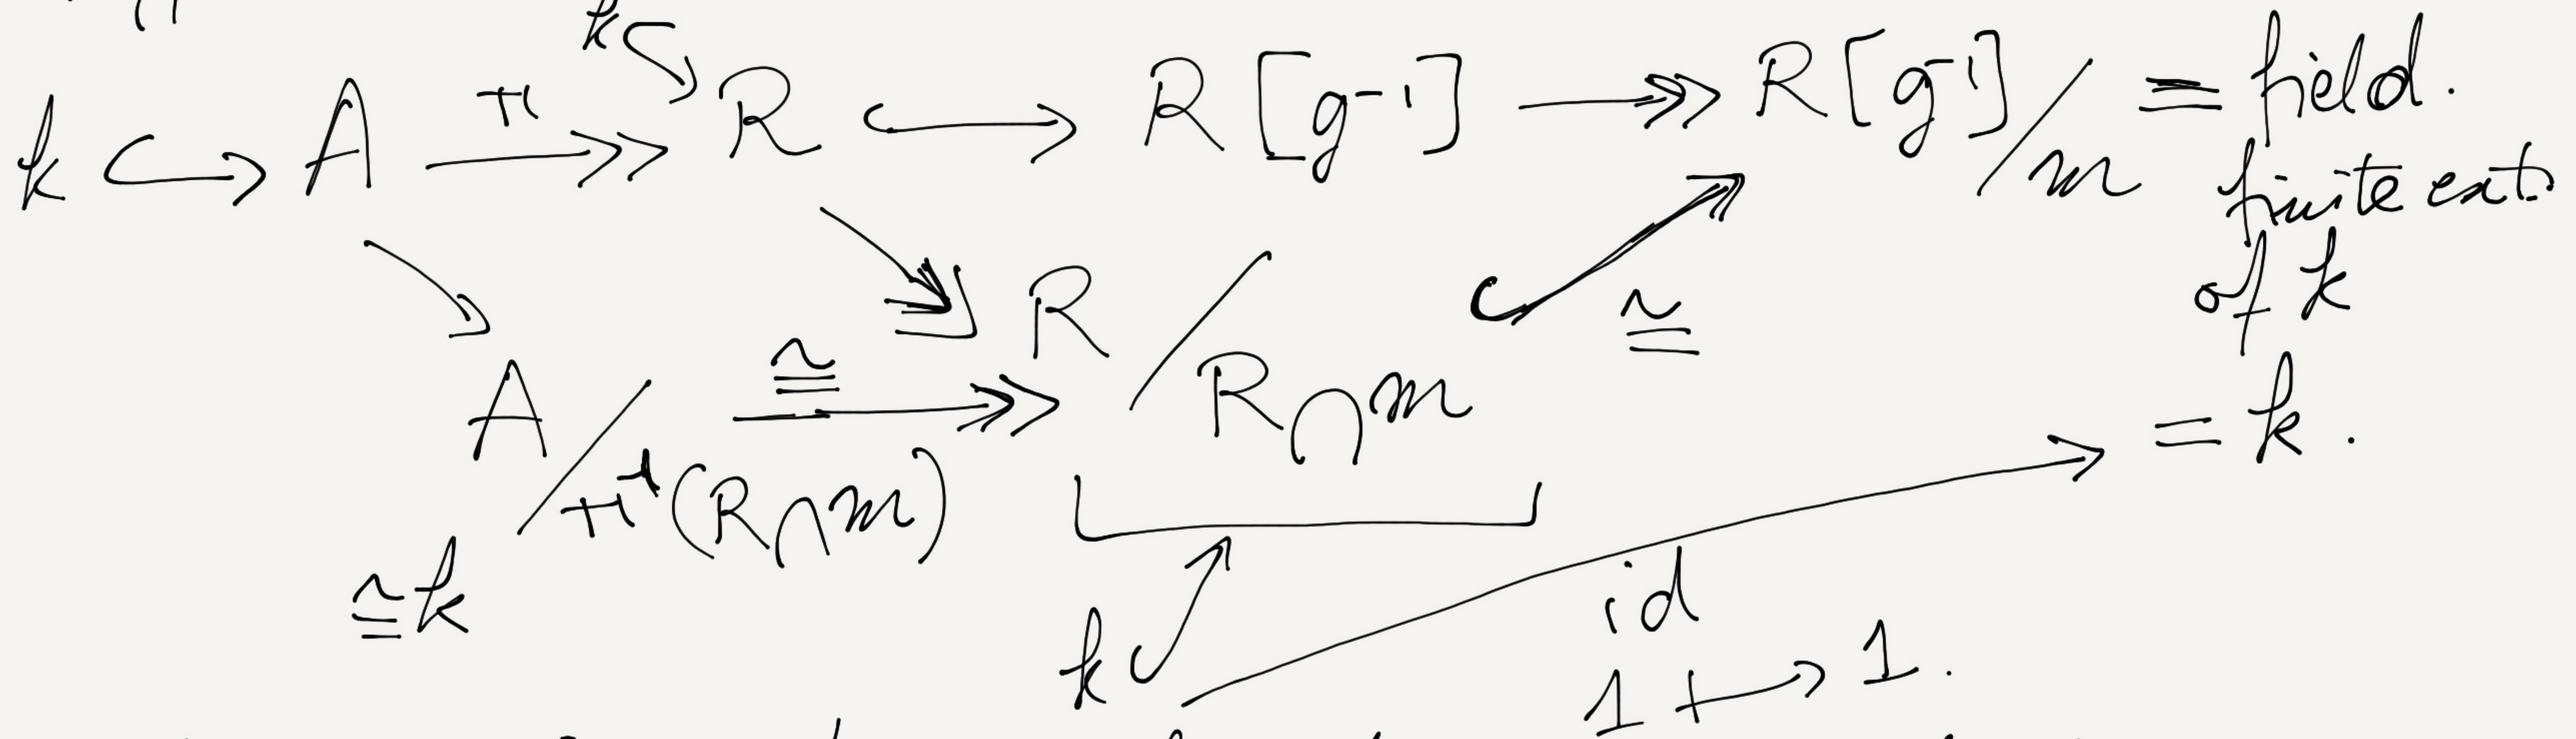 k ↪
k ↪ A π ↠ R ↪ R[g⁻¹] ↠ R[g⁻¹]/m = field.
finite ext.
of k
↘ ↘ R/R∩m ↪ ≅
A/π⁻¹(R∩m) ≅ ↠ = k.
≅ k
k ↪ id
1 ↦ 1.